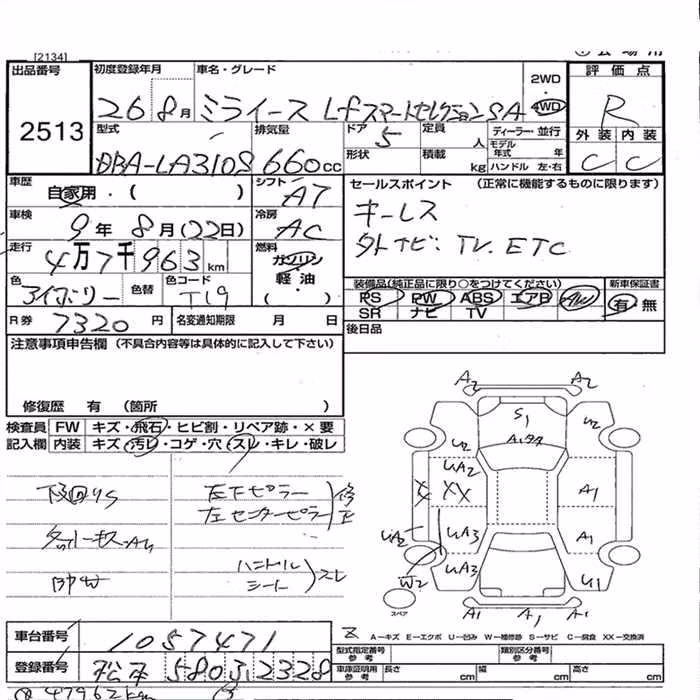 [2134]
出品番号
2513
初度登録年月
26 8月
車名・グレード
ミライース Lfスマートセレクション SA
2WD
4WD
評価点
R
外装 内装
C C
型式
DBA-LA310S
排気量
660cc
ドア
5
定員
人
ディーラー・並行
モデル年式 年
形状
積載
kg
ハンドル 左・右
車歴
自家用・( )
シフト
AT
車検
9年 8月(22日)
冷房
AC
走行
4万7千963km
燃料
ガソリン
軽・油
( )
色
アイボリー
色替
色コード
T19
R券 7320円
名変通知期限 月 日
セールスポイント (正常に機能するものに限ります)
キーレス
外ナビ. TV. ETC
装備品(純正品に限り○をつけてください)
PS PW ABS エアB AW
SR ナビ TV
新車保証書
有 無
後日品
注意事項申告欄(不具合内容等は具体的に記入して下さい)
修復歴 有 (箇所 )
検査員 FW キズ・飛石・ヒビ割・リペア跡・×要
記入欄 内装 キズ・汚レ・コゲ・穴・スレ・キレ・破レ
下回りS
左下ピラー
左センターピラー
修正
ハンドル
シート
スレ
A2 A2
S1
U2 U2
UA2
XX
A1
UA2 UA3 A1
W2 UA3 U1
A1 A1 A1
スペア
A-キズ E-エクボ U-凹み W-補修跡 S-サビ C-腐食 XX-交換済
車台番号
1057471
登録番号
松本 580 す 2328
型式指定番号 参考
類別区分番号 参考
車庫証明用 参考
長さ cm 幅 cm 高さ cm